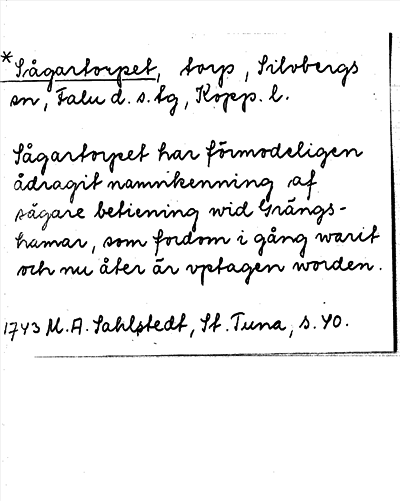 *Sågartorpet, torp, Silvbergs
sn, Falu d. s. tg, Kopp. l.
Sågartorpet har förmodeligen
ådragit namnkenning af
sågare betiening wid Grängs-
hamar, som fordom i gång warit
och nu åter är vptagen worden.
1743 M. A. Sahlstedt, St. Tuna, s. 40.